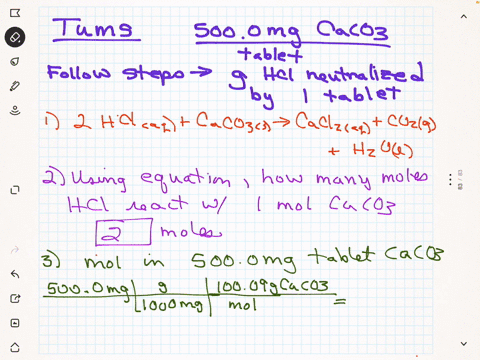 Tums 500.0mg CaCO3
tablet
Follow steps → g HCl neutralized
by 1 tablet
1) 2 HCl(aq) + CaCO3(s) → CaCl2(aq) + CO2(g)
+ H2O(l)
2) Using equation, how many moles
HCl react w/ 1 mol CaCO3
2 moles
3) mol in 500.0mg tablet CaCO3
500.0mg | g | 100.09g CaCO3
1000mg | mol =